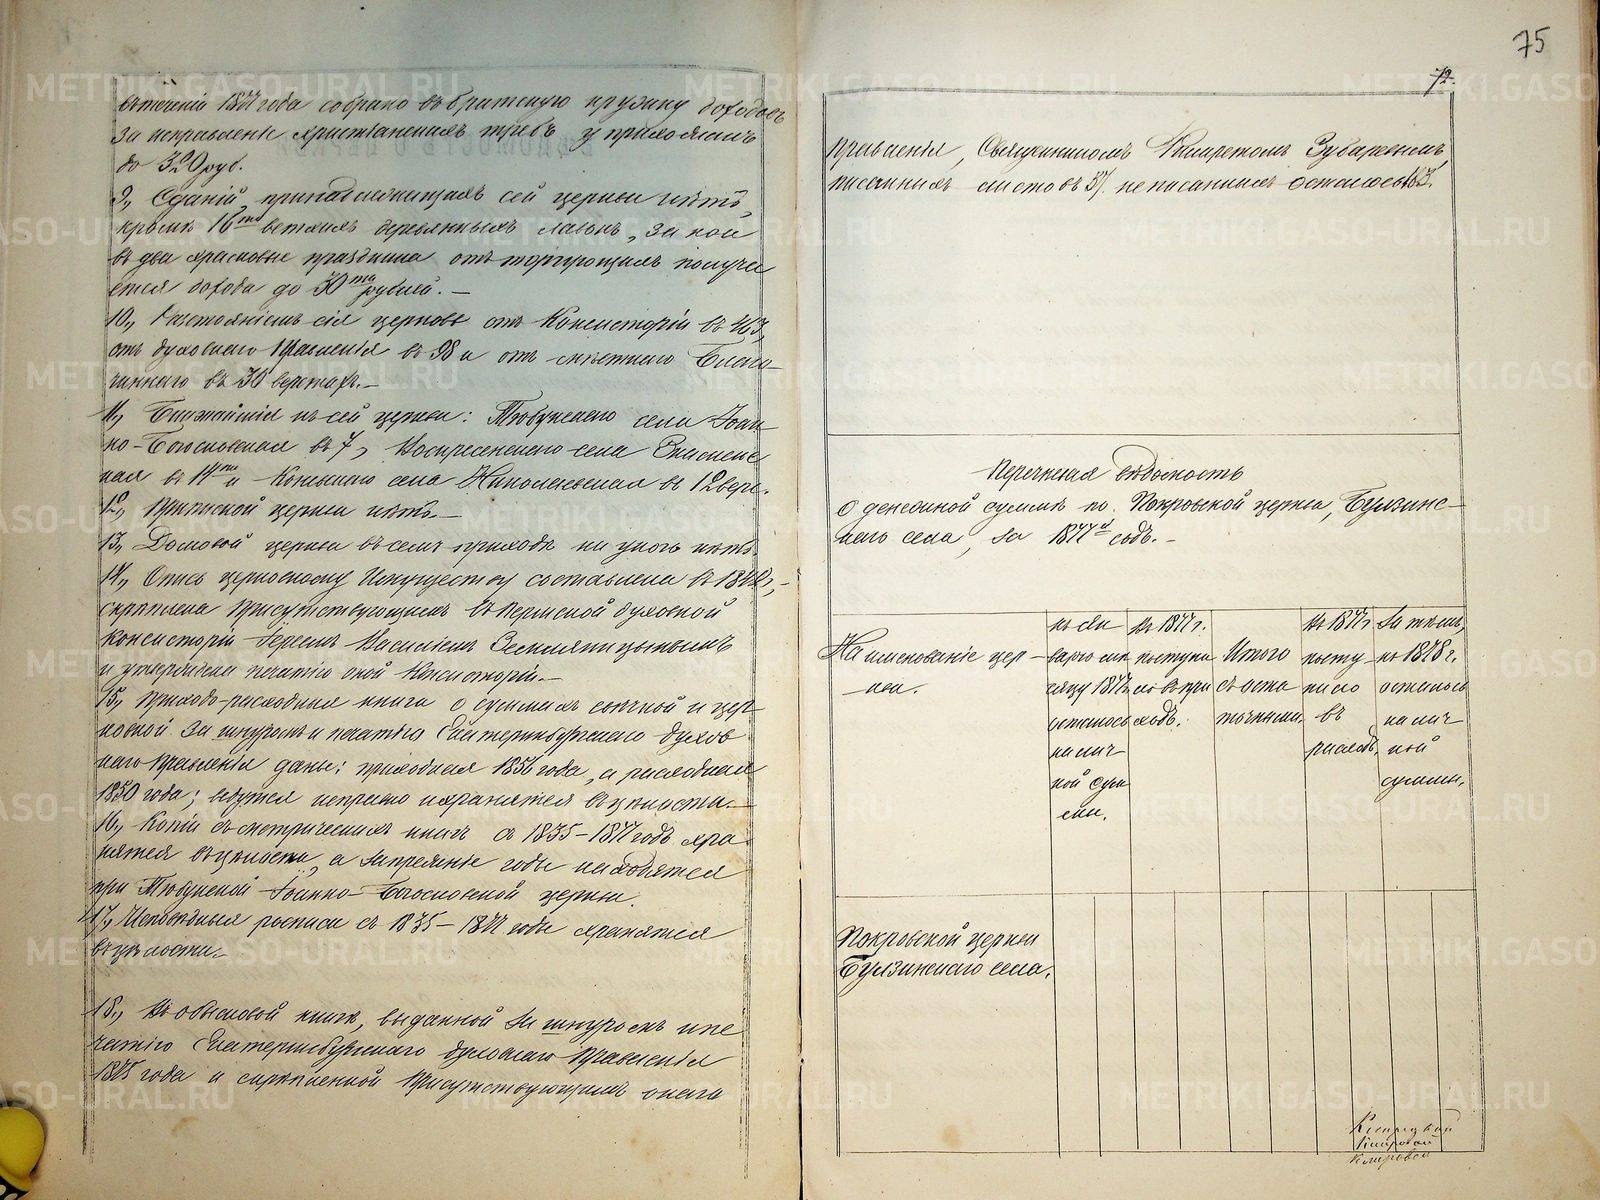 въ теченіи 1877 года собрано въ братскую кружку доходовъ
за исправленіе христіанскихъ требъ у прихожанъ
до 320 руб.
9., Зданій, принадлежащихъ сей церкви нѣтъ,
кромѣ 16ти ветхихъ деревянныхъ лавокъ, за кои
въ два храмовые праздника отъ торгующихъ получа
ется дохода до 30ти рублей. —
10., Разстояніемъ сія церковь отъ Консисторіи въ 463,
отъ духовнаго Правленія въ 98 и отъ мѣстнаго Благо-
чиннаго въ 30 верстахъ. —
11., Ближайшія къ сей церкви: Тюбукскаго села Іоан-
но-Богословская въ 7, Воскресенскаго села
въ 14ти и Конскаго села Николаевская въ 12 верс.
12., Приписной церкви нѣтъ. —
13., Домовой церкви въ семъ приходѣ ни у кого нѣтъ.
14., Опись церковному Имуществу составлена въ г.,
скрѣплена Присутствующимъ въ Пермской духовной
Консисторіи Іереемъ Василіемъ
и утверждена печатію оной Консисторіи. —
15., Приходо-расходныя книги о суммахъ свѣчной и цер-
ковной за шнуромъ и печатью Екатеринбургскаго духов
наго Правленія даны: приходная 1856 года, а расходная
1850 года; ведутся исправно и хранятся въ цѣлости. —
16., Копіи съ метрическихъ книгъ съ 1835 – 1877 годъ хра
нятся въ цѣлости, а за прежніе годы находятся
при Тюбукской Іоанно-Богословской церкви.
17., Исповѣдныя росписи съ 1835 – 1877 годъ хранятся
въ цѣлости. —
18., Въ обыскной книгѣ, выданной за шнуромъ и пе
чатію Екатеринбургскаго духовнаго Правленія
года и скрѣпленной Присутствующимъ онаго
75
72.
Правленія, Священникомъ Зубаревымъ,
писанныхъ листовъ 57. неписанныхъ осталось
Перечневая вѣдомость
о денежной суммѣ по Покровской церкви, Булзинс-
каго села, за 1877й годъ. —
Наименованіе цер-
кви.
Къ ян
варю мѣ
сяцу 1877
осталось
налич
ной сум
мы.
Въ 1877 г.
поступи
ло въ при
ходъ.
Итого
съ оста
точными.
Въ 1877 г.
посту
пило
въ
расходъ.
За тѣмъ,
къ 1878 г.
осталось
налич
ной
суммы.
Покровской церкви
Булзинскаго села.